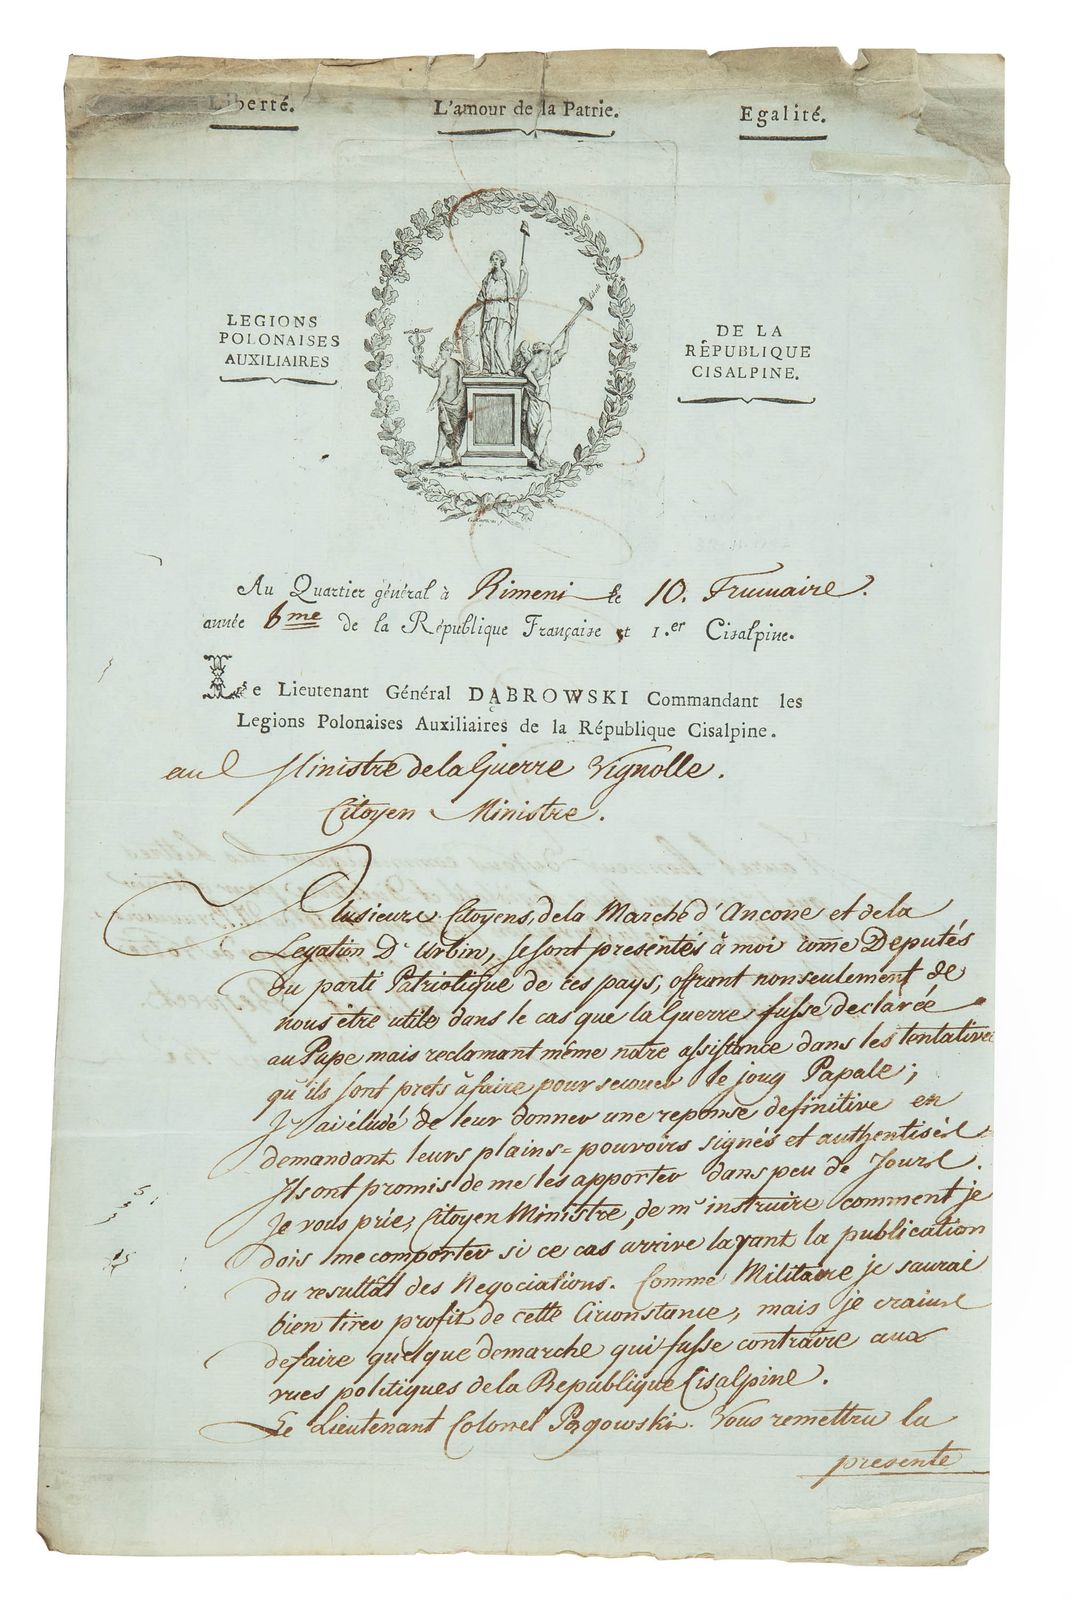 Liberté.
L'amour de la Patrie.
Egalité.
LEGIONS
POLONAISES
AUXILIAIRES
DE LA
RÉPUBLIQUE
CISALPINE.
Au Quartier général à Rimeni le 10. Frumaire.
année 6me de la République Française et 1.er Cisalpine.
Le Lieutenant Général DĄBROWSKI Commandant les
Legions Polonaises Auxiliaires de la République Cisalpine.
au Ministre de la Guerre Vignolle.
Citoyen Ministre.
Plusieurs Citoyens, de la Marche d'Ancone et de la
Legation D'Urbin, se sont presentés à moi come Deputés
du parti Patriotique de ces pays, offrant non seulement de
nous être utile dans le cas que la Guerre fusse declarée
au Pape mais reclamant même notre assistance dans les tentatives
qu'ils sont prets à faire pour secouer le joug Papale;
J'ai éludé de leur donner une reponse definitive en
demandant leurs plains=pouvoirs signés et authentisés
Ils ont promis de me les apporter dans peu de Jours.
Je vous prie, Citoyen Ministre, de m'instruire comment je
dois me comporter si ce cas arrive avant la publication
du resultat des Negociations. Comme Militaire je saurai
bien tirer profit de cette Circonstance, mais je crains
de faire quelque demarche qui fusse contraire aux
vues politiques de la Republique Cisalpine.
Le Lieutenant Colonel Pągowski Vous remettra la
presente